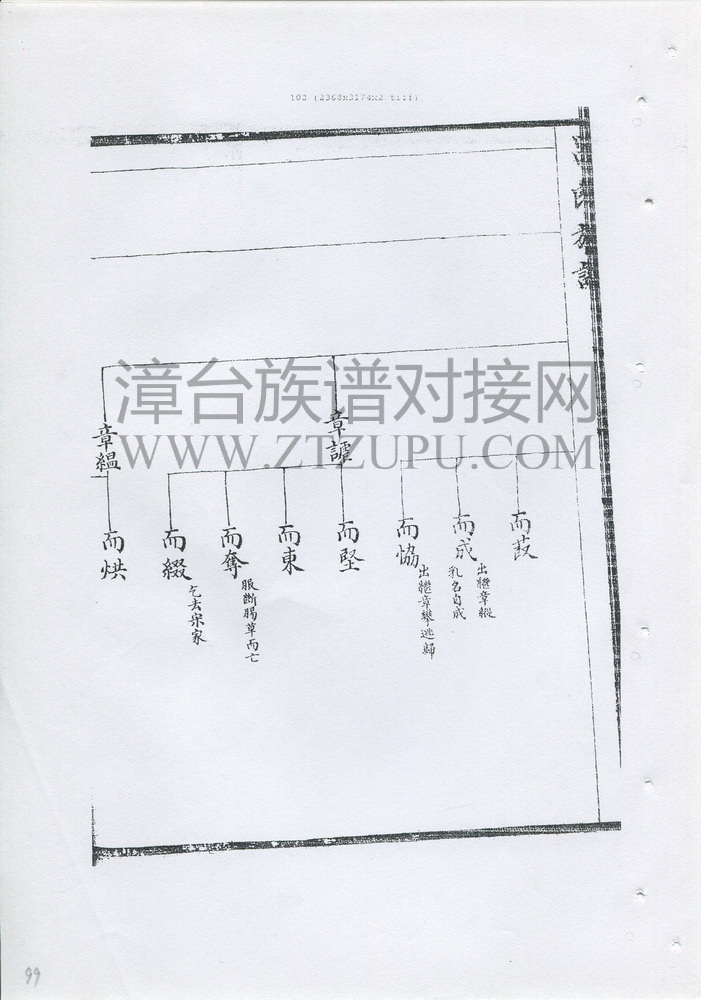 102 (2368x3174x2 tiff)
族譜
漳台族谱对接网
WWW.ZTZUPU.COM
章謔
章緼
而葮
而成
出繼章縱
乳名自成
而恊
出繼章攀逃歸
而堅
而東
而奪
服斷腸草而亡
而綴
乞去宋家
而烘
99